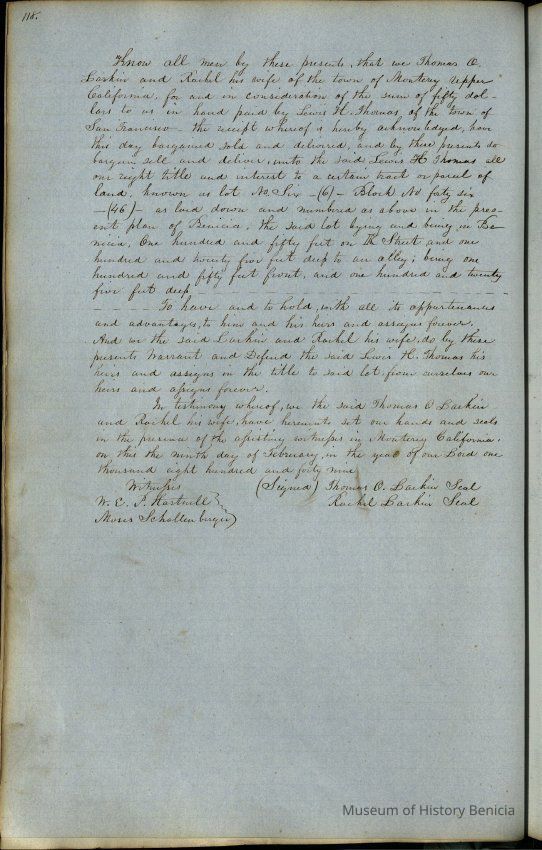 118.
Know all men by these presents, that we Thomas O.
Larkin and Rachel his wife of the town of Monterey Upper
California, for and in consideration of the sum of fifty dol-
lars to us in hand paid by Lewis H. Thomas, of the town of
San Francisco – the receipt whereof is hereby acknowledged, have
this day bargained sold and delivered, and by these presents do
bargain sell and deliver, unto the said Lewis H Thomas all
our right title and interest to a certain tract or parcel of
land, known as lot No Six –(6)– Block No forty six
–(46)– as laid down and numbered as above in the pres-
ent plan of Benicia, the said lot lying and being in Be-
nicia, One hundred and fifty feet on Street and one
hundred and twenty five feet deep to an alley; being one
hundred and fifty feet front, and one hundred and twenty
five feet deep.
To have and to hold, with all its appurtenances
and advantages, to him and his heirs and assigns forever.
And we the said Larkin and Rachel his wife, do by these
presents Warrant and Defend the said Lewis H. Thomas his
heirs and assigns in the title to said lot, from ourselves our
heirs and assigns forever.
In testimony whereof, we the said Thomas O Larkin
and Rachel his wife, have hereunto set our hands and seals
in the presence of the witnesses in Monterey California,
on this the ninth day of February, in the year of our Lord one
thousand eight hundred and forty nine
Witnesses (Signed) Thomas O. Larkin Seal
W. E. P. Hartnell Rachel Larkin Seal
Moses Schallenberger
Museum of History Benicia